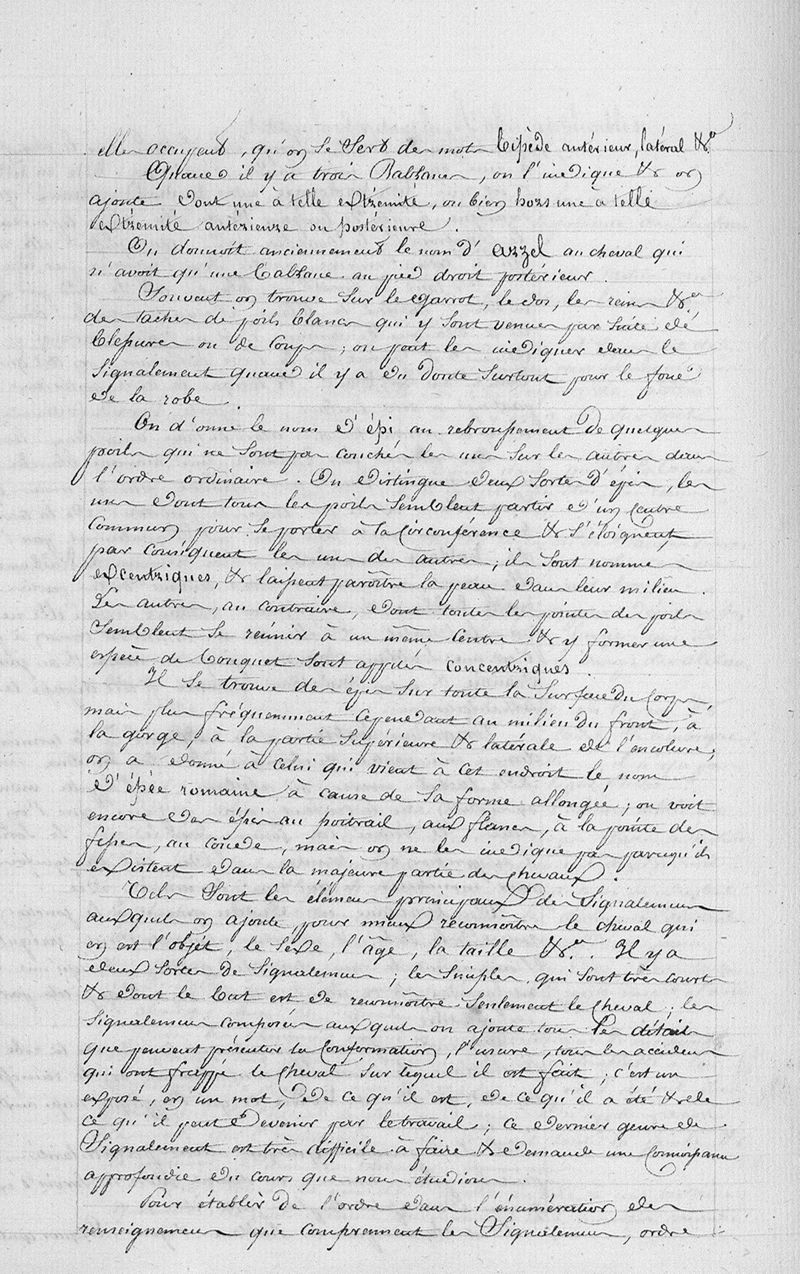 elles occupent, qu'on se sert des mots bipède antérieur, latéral &a
Quand il y a trois Balzanes, on l'indique & on
ajoute dont une à telle extrémité, ou bien hors une à telle
extrémité antérieure ou postérieure.
On donnoit anciennement le nom d'arzel au cheval qui
n'avoit qu'une balzane au pied droit postérieur.
Souvent on trouve sur le garrot, le dos, les reins &a
des taches de poils blancs qui y sont venues par suite de
blessures ou de coups; on peut les indiquer dans le
signalement quand il y a du doute surtout pour le fond
de la robe.
On donne le nom d'épi au rebroupement de quelques
poils qui ne sont pas couchés les uns sur les autres dans
l'ordre ordinaire. On distingue deux sortes d'épis, les
uns dont tous les poils semblent partir d'un centre
commun pour se porter à la circonférence & s'éloignent
par conséquent les uns des autres; ils sont nommés
excentriques, & laissent paroître la peau dans leur milieu.
Les autres, au contraire, dont toutes les pointes des poils
semblent se réunir à un même centre & y former une
espèce de bouquet sont appelés concentriques.
Il se trouve des épis sur toute la surface du corps,
mais plus fréquemment cependant au milieu du front, à
la gorge, à la partie supérieure & latérale de l'encolure;
on a donné à celui qui vient à cet endroit le nom
d'épée romaine à cause de sa forme allongée; on voit
encore des épis au poitrail, aux flancs, à la pointe des
fesses, au coude, mais on ne les indique pas parcequ'ils
existent dans la majeure partie des chevaux.
Tels sont les élémens principaux des signalemens
auxquels on ajoute, pour mieux reconnoître le cheval qui
en est l'objet, le sexe, l'âge, la taille &a. Il y a
deux sortes de signalemens; les simples qui sont très courts
& dont le but est de reconnoître seulement le cheval; les
signalemens composés auxquels on ajoute tous les détails
que peuvent présenter la conformation, l'usure, tous les accidens
qui ont frappé le cheval sur lequel il est fait; c'est un
exposé, en un mot, de ce qu'il est, de ce qu'il a été & de
ce qu'il peut devenir par le travail; ce dernier genre de
signalement est très difficile à faire & demande une connoissance
approfondie du cours que nous étudions.
Pour établir de l'ordre dans l'énumération des
renseignemens que comprennent les signalemens, ordre